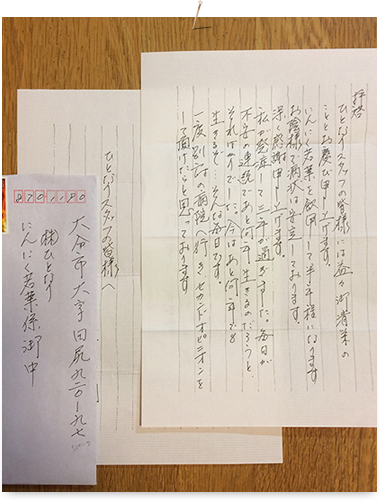 拝啓
ひとなりスタッフの皆様には益々御清栄の
こととお慶び申し上げます。
にんにく若葉を飲用して半年様になります。
お陰様で病状は安定しております。
深く感謝申し上げます。
私が発症して二年が過ぎました。毎日が
不安の連続であと何年生きるのだろうと
そればかりでした。今はあと何年でも
生きるぞ…そんな毎日です。
一度別の病院へ行きセカンドオピニオンを
して頂けたらと思っております。
ひとなりスタッフの皆様へ
8701180
大分市大字田尻九二〇ー九七
㈱ひとなり
にんにく若葉係御中